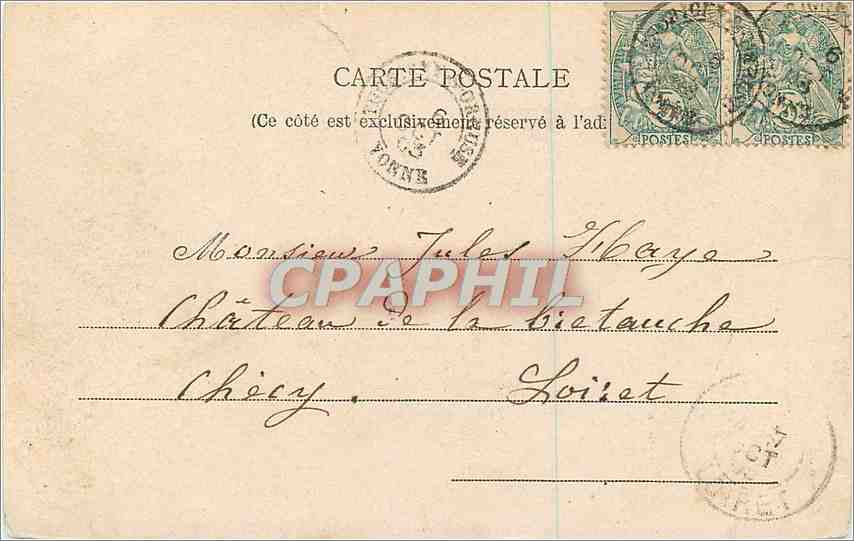 CARTE POSTALE
(Ce côté est exclusivement réservé à l'ad
POSTES
POSTES
YONNE
Monsieur Jules
CPAPHIL
Château de la bretauche
Chécy. Loiret